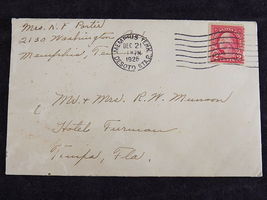 Mrs. R. F. Porter
2130 Washington
Memphis, Tenn
MEMPHIS, TENN.
DEC 21
1926
DE SOTO STA.
Mr & Mrs. R. W. Munson
Hotel Furman
Tampa, Fla.